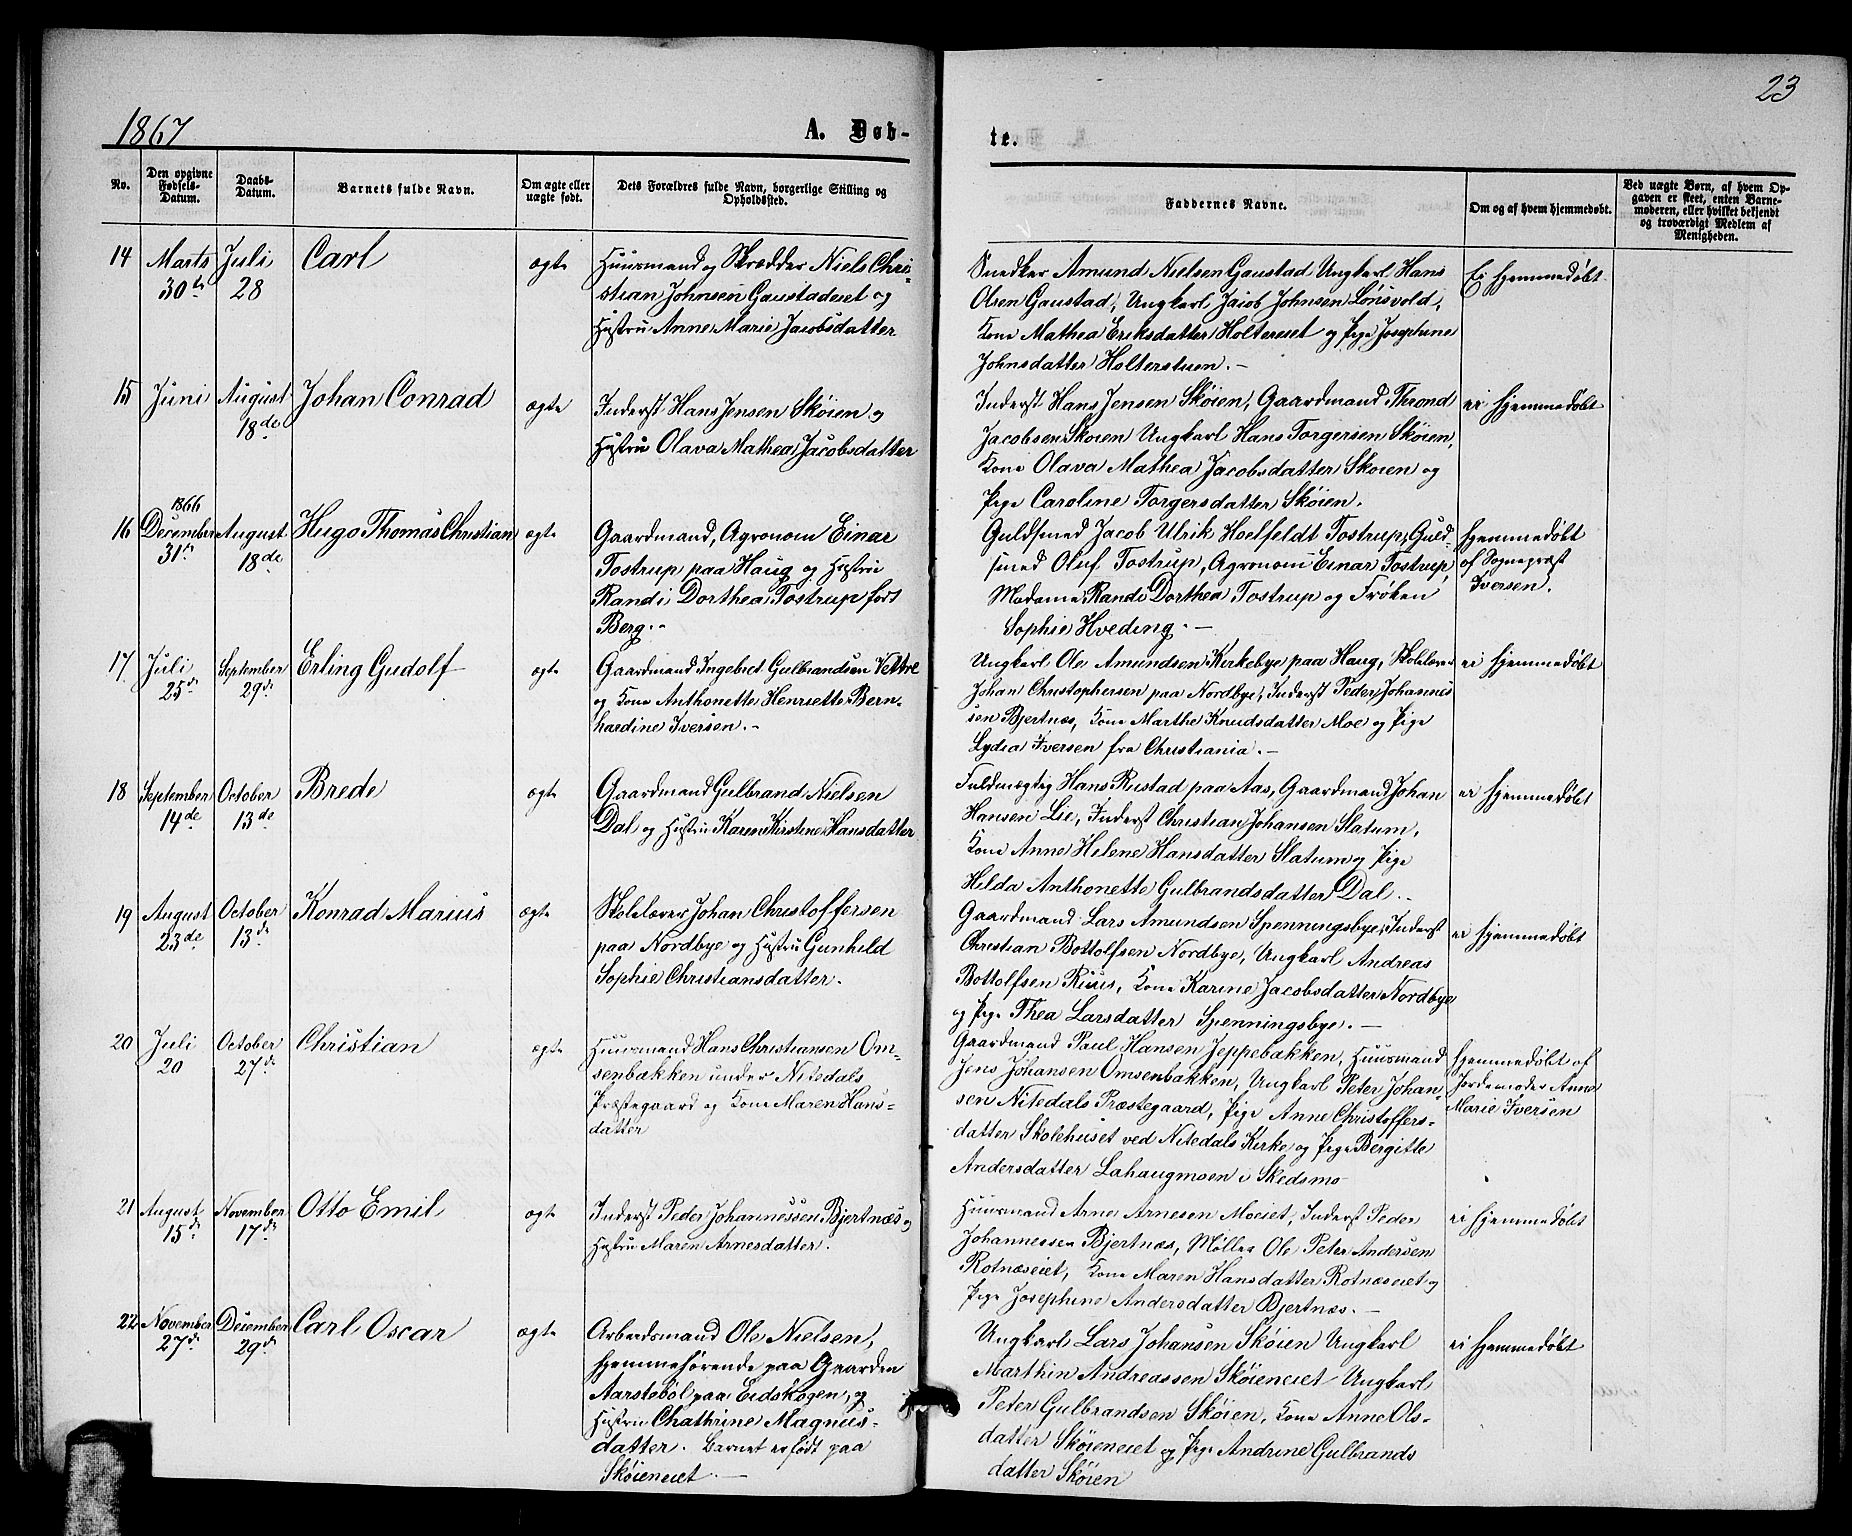 23
1867
A. Døb-
te.
No.
Den opgivne
Fødsels-
Datum.
Daabs-
Datum.
Barnets fulde Navn.
Om ægte eller
uægte født.
Dets Forældres fulde Navn, borgerlige Stilling og
Opholdssted.
Faddernes Navne.
Om og af hvem hjemmedøbt.
Ved uægte Børn, af hvem Op-
gaven er skeet, enten Barne-
moderen, eller hvilket bekjendt
og troværdigt Medlem af
Menigheden.
14
Marts
30te
Juli
28
Carl
ægte
Huusmand og Skrædder Niels Chri-
stian Johnsen Gaustadeiet og
Hustru Anne Marie Jacobsdatter
Snedker Amund Nielsen Gaustad Ungkarl Hans
Olsen Gaustad, Ungkarl Jacob Johnsen Lørsvold,
Kone Mathea Eriksdatter Holtereiet og Pige Josephine
Johnsdatter Holterstuen. -
Ei hjemmedøbt.
15
Juni
August
18de
Johan Conrad
ægte
Inderst Hans Jensen Skøien og
Hustru Olava Mathea Jacobsdatter
Inderst Hans Jensen Skøien, Gaardmand Thrond
Jacobsen Skøien Ungkarl Hans Torgersen Skøien,
Kone Olava Mathea Jacobsdatter Skoien og
Pige Caroline Torgersdatter Skøien.
ei hjemmedøbt
16
1866
December
31te
August
18de
Hugo Thomas Christian
ægte
Gaardmand, Agronom Einar
Tostrup paa Haug og Hustru
Randi Dorthea Tostrup født
Berg. -
Guldsmed Jacob Ulrik Hoelfeldt Tostrup, Guld-
smed Oluf Tostrup, Agronom Einar Tostrup,
Madame Randi Dorthea Tostrup og Frøken
Sophie Hveding. -
hjemmedøbt
af Sognepræst
Iversen.
17
Juli
25de
September
29de
Erling Gudolf
ægte
Gaardmand Ingebret Gulbrandsen Vettre
og Kone Anthonette Henriette Bern-
hardine Iversen. -
Ungkarl Ole Amundsen Kirkebye paa Haug, Skolelærer
Johan Christophersen paa Nordbye, Inderst Peder Johannes
sen Bjertnæs, Kone Marthe Knudsdatter Moe og Pige
Lydia Iversen fra Christiania. -
ei hjemmedøbt
18
September
14de
October
13de
Brede
ægte
Gaardmand Gulbrand Nielsen
Dal og Hustru Karen Kirstine Hansdatter
Fuldmægtig Hans Rustad paa Aas, Gaardmand Johan
Hansen Lie, Inderst Christian Johansen Slatum,
Kone Anne Helene Hansdatter Slatum og Pige
Hilda Anthonette Gulbrandsdatter Dal. -
ei hjemmedøbt
19
August
23de
October
13de
Konrad Marius
ægte
Skolelærer Johan Christoffersen
paa Nordbye og Hustru Gunhild
Sophie Christiansdatter.
Gaardmand Lars Amundsen Spenningsbye, Inderst
Christian Bottolfsen Nordbye, Ungkarl Andreas
Bottolfsen Riiis, Kone Karine Jacobsdatter Nordbye
og Pige Thea Larsdatter Spenningsbye. -
ei hjemmedøbt
20
Juli
20
October
27de
Christian
ægte
Huusmand Hans Christiansen Om-
senbakken under Nitedals
Præstegaard og Kone Maren Hans-
datter
Gaardmand Paul Hansen Jeppebakken, Huusmand
Jens Johansen Omsenbakken, Ungkarl Peter Johan-
sen Nitedals Præstegaard, Pige Anne Christoffers-
datter Skolehuset ved Nitedals Kirke og Pige Bergitte
Andersdatter Lahaugmoen i Skedsmo
hjemmedøbt af
Jordemoder Anne
Marie Iversen
21
August
15de
November
17de
Otto Emil
ægte
Inderst Peder Johannessen Bjertnæs og
Hustru Maren Arnesdatter.
Huusmand Arne Arnesen Moeiet, Inderst Peder
Johannessen Bjertnæs, Møller Ole Peter Andersen
Rotnæseiet, Kone Maren Hansdatter Rotnæseiet og
Pige Josephine Andersdatter Bjertnæs. -
ei hjemmedøbt
22
November
27de
December
29de
Carl Oscar
ægte
Arbeidsmand Ole Nielsen,
hjemmehørende paa Gaarden
Aarstebøl paa Eidskogen, og
Hustru Chathrine Magnus-
datter. Barnet er født paa
Skøieneiet. -
Ungkarl Lars Johansen Skøien Ungkarl
Marthin Andreassen Skøieneiet Ungkarl
Peter Gulbrandsen Skøien, Kone Anne Ols-
datter Skøieneiet og Pige Andrine Gulbrands
datter Skøien
ei hjemmedøbt